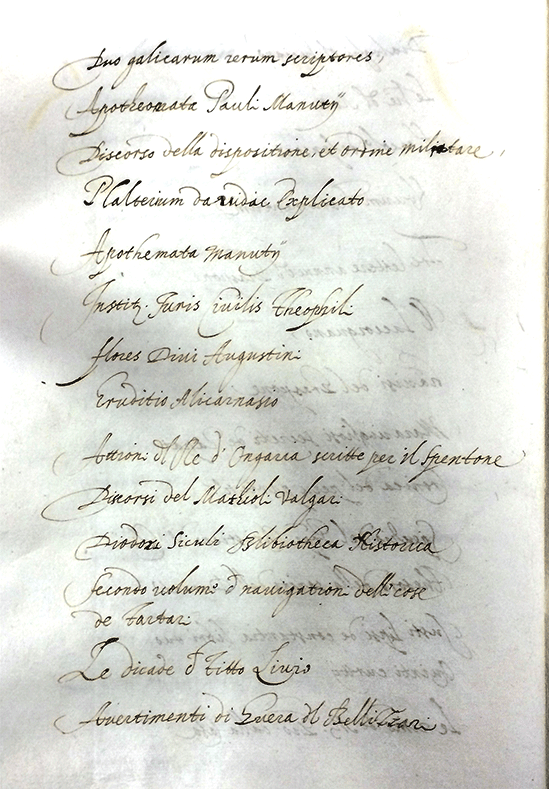 Duo galicarum rerum scriptores,
Apotheomata Pauli Manutÿ
Discorso della dispositione, et ordine militare,
Psalterium da vidac explicato
Apothemata Manutÿ
Instit. Juris civilis Theophili
flores Divi Augustini
Eruditio Alicarnasio
Attion. dl Re d' Ongaria scritte per il spentone
Discorsi del Mathiol. Valgar.
Diodori Siculi Bibliotheca Historica
Secondo volume d navigation. dell. cose
de Tartar.
Le dicade d Titto Livio
Avertimenti di Guera dl Bellizari